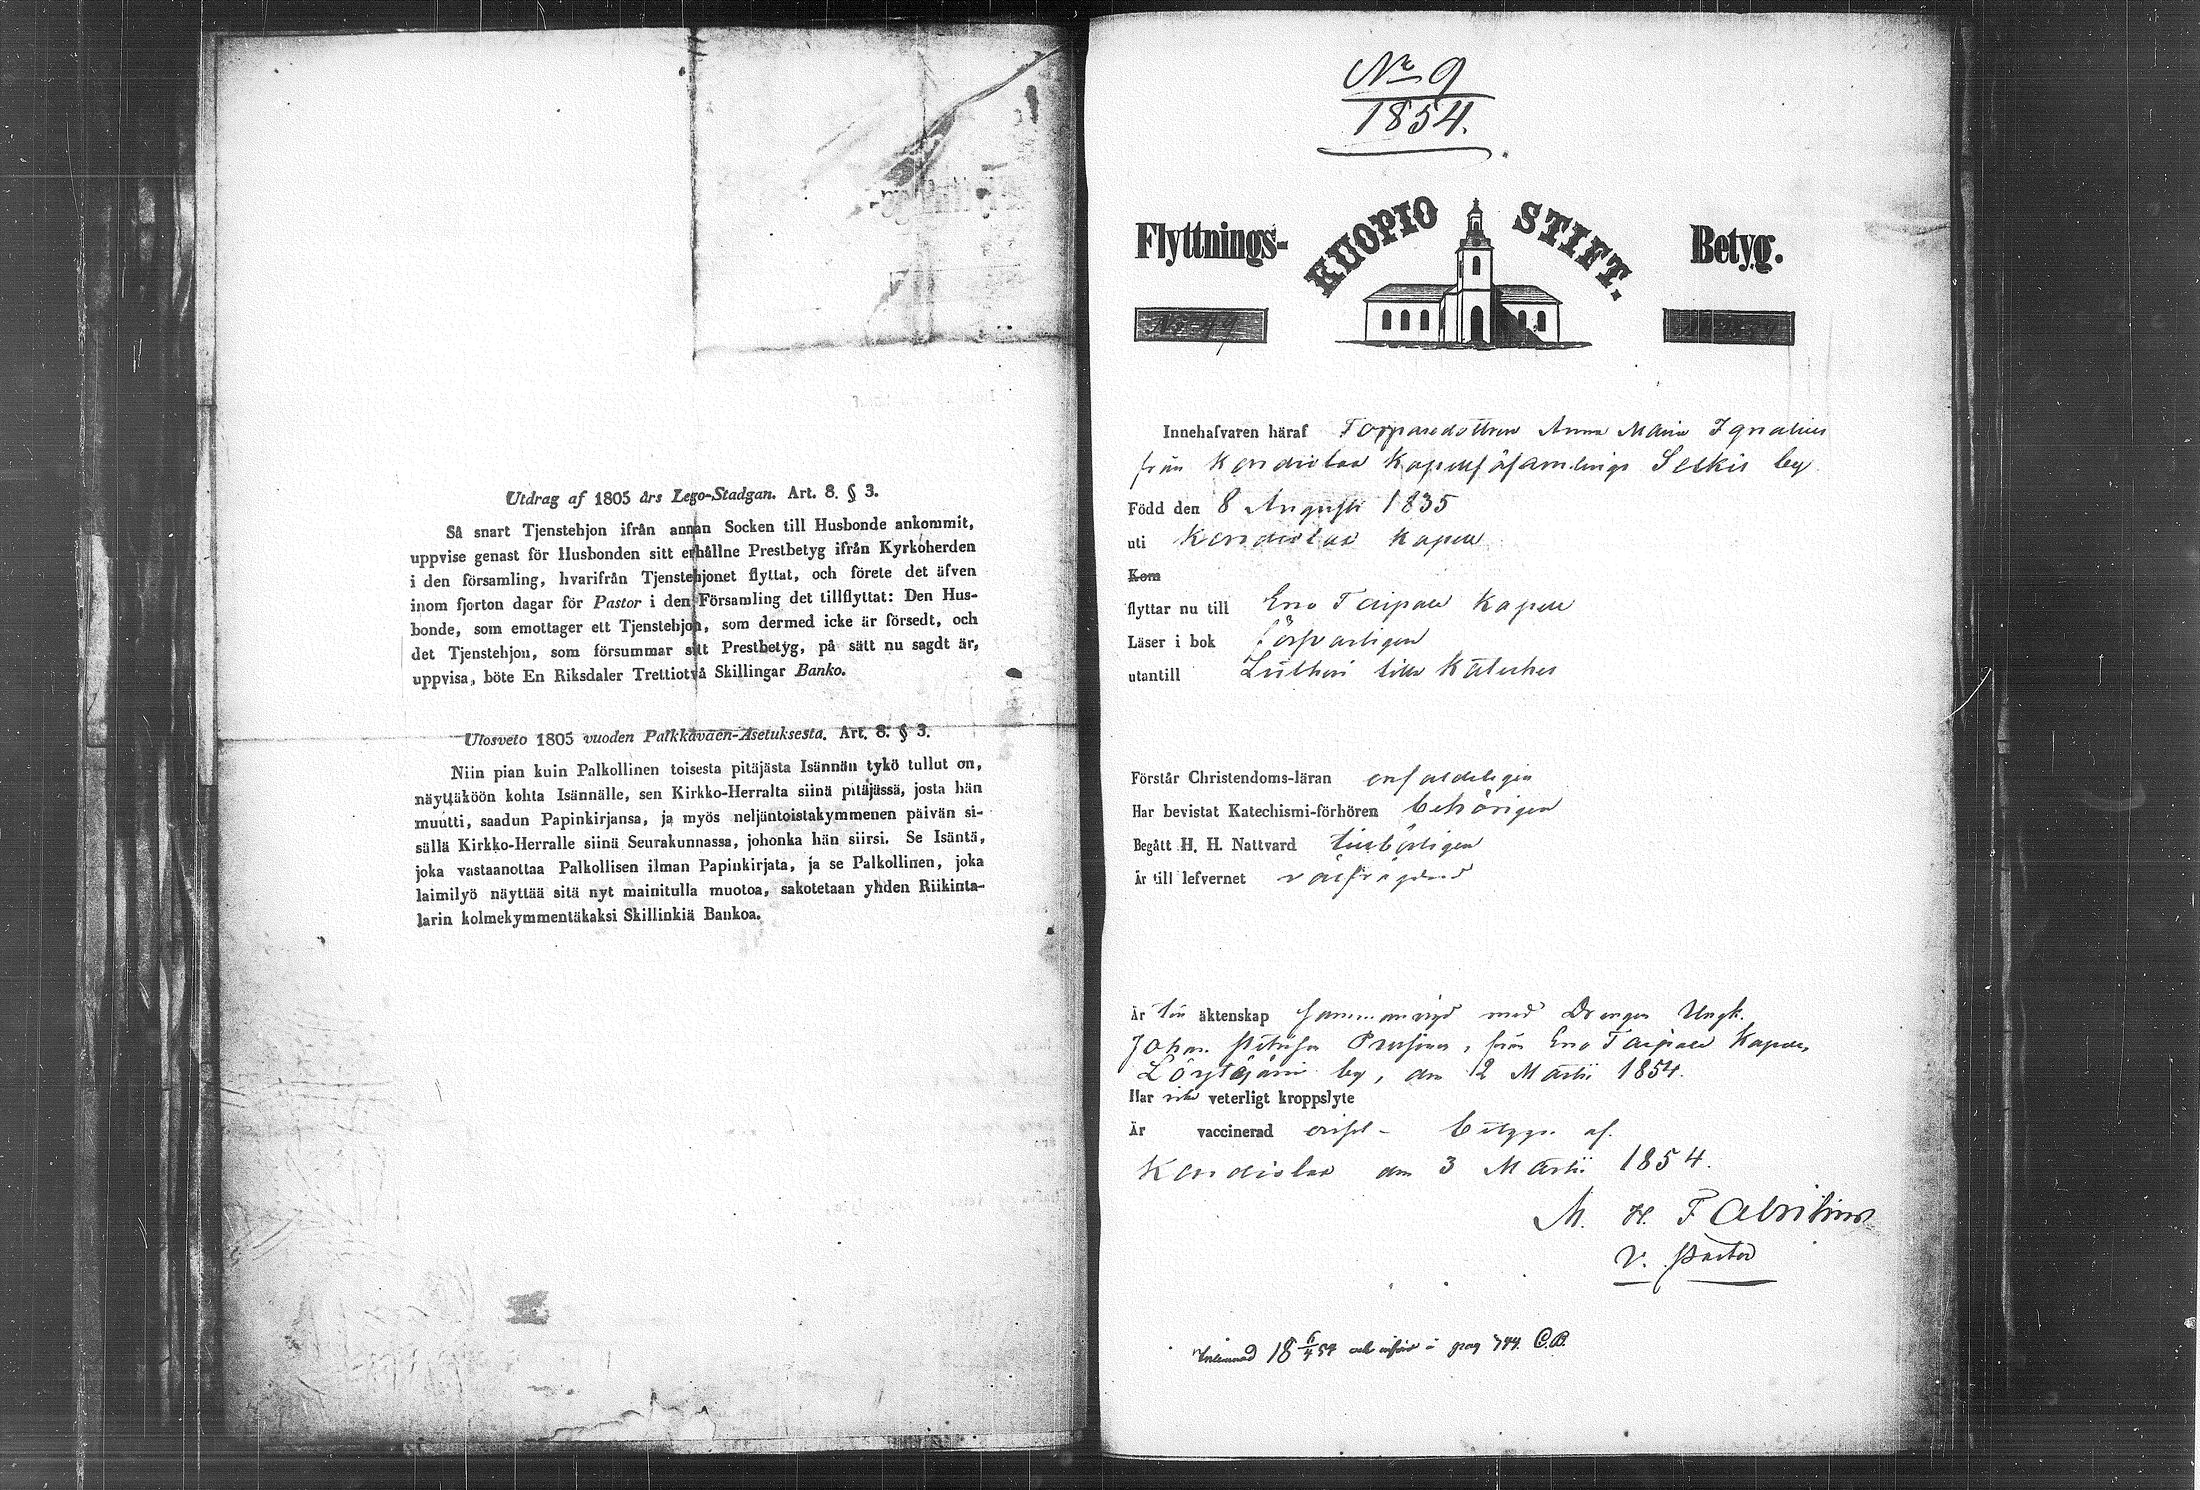 Utdrag af 1805 års Lego-Stadgan. Art. 8. § 3.
Så snart Tjenstehjon ifrån annan Socken till Husbonde ankommit,
uppvise genast för Husbonden sitt erhållne Prestbetyg ifrån Kyrkoherden
i den församling, hvarifrån Tjenstehjonet flyttat, och förete det äfven
inom fjorton dagar för Pastor i den Församling det tillflyttat: Den Hus-
bonde, som emottager ett Tjenstehjon, som dermed icke är försedt, och
det Tjenstehjon, som försummar sitt Prestbetyg, på sätt nu sagdt är,
uppvisa, böte En Riksdaler Trettiotvå Skillingar Banko.
Ulosveto 1805 vuoden Palkkaväen-Asetuksesta. Art. 8. § 3.
Niin pian kuin Palkollinen toisesta pitäjästa Isännän tykö tullut on,
näyttäköön kohta Isännälle, sen Kirkko-Herralta siinä pitäjässä, josta hän
muutti, saadun Papinkirjansa, ja myös neljäntoistakymmenen päivän si-
sällä Kirkko-Herralle siinä Seurakunnassa, johonka hän siirsi. Se Isäntä,
joka vastaanottaa Palkollisen ilman Papinkirjata, ja se Palkollinen, joka
laimilyö näyttää sitä nyt mainitulla muotoa, sakotetaan yhden Riikinta-
larin kolmekymmentäkaksi Skillinkiä Bankoa.
No 9
1854.
Flyttnings- KUOPIO STIFT. Betyg.
Innehafvaren häraf Torparedottren Anna Maria Ignatius
från Kondiolax Kapellförsamlings Selkis by
Född den 8 Augusti 1835
uti Kondiolax Kapell
Kom
flyttar nu till Eno Taipale Kapell
Läser i bok försvarligen
utantill Lutheri lilla Kateches
Förstår Christendoms-läran enfaldeligen
Har bevistat Katechismi-förhören behörigen
Begått H. H. Nattvard tillbörligen
Är till lefvernet välfrägdad
Är till äktenskap sammanvigd med Drängen Ungk.
Johan Petter Prusinen, från Eno Taipale Kapell,
Löytöjärvi by, den 12 Martii 1854.
Har icke veterligt kroppslyte
Är vaccinerad betygar af.
Kondiolax den 3 Martii 1854.
M. H. Fabritius
V. Pastor
Inlemnad 18 6/4 54 och införd i pag 744. C.B.